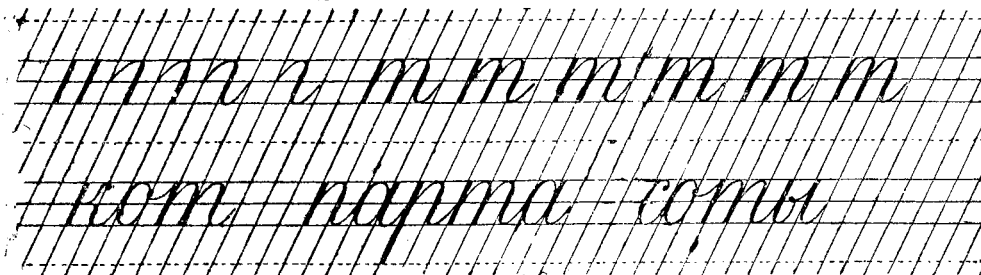 т т т т т т
кот парта соты